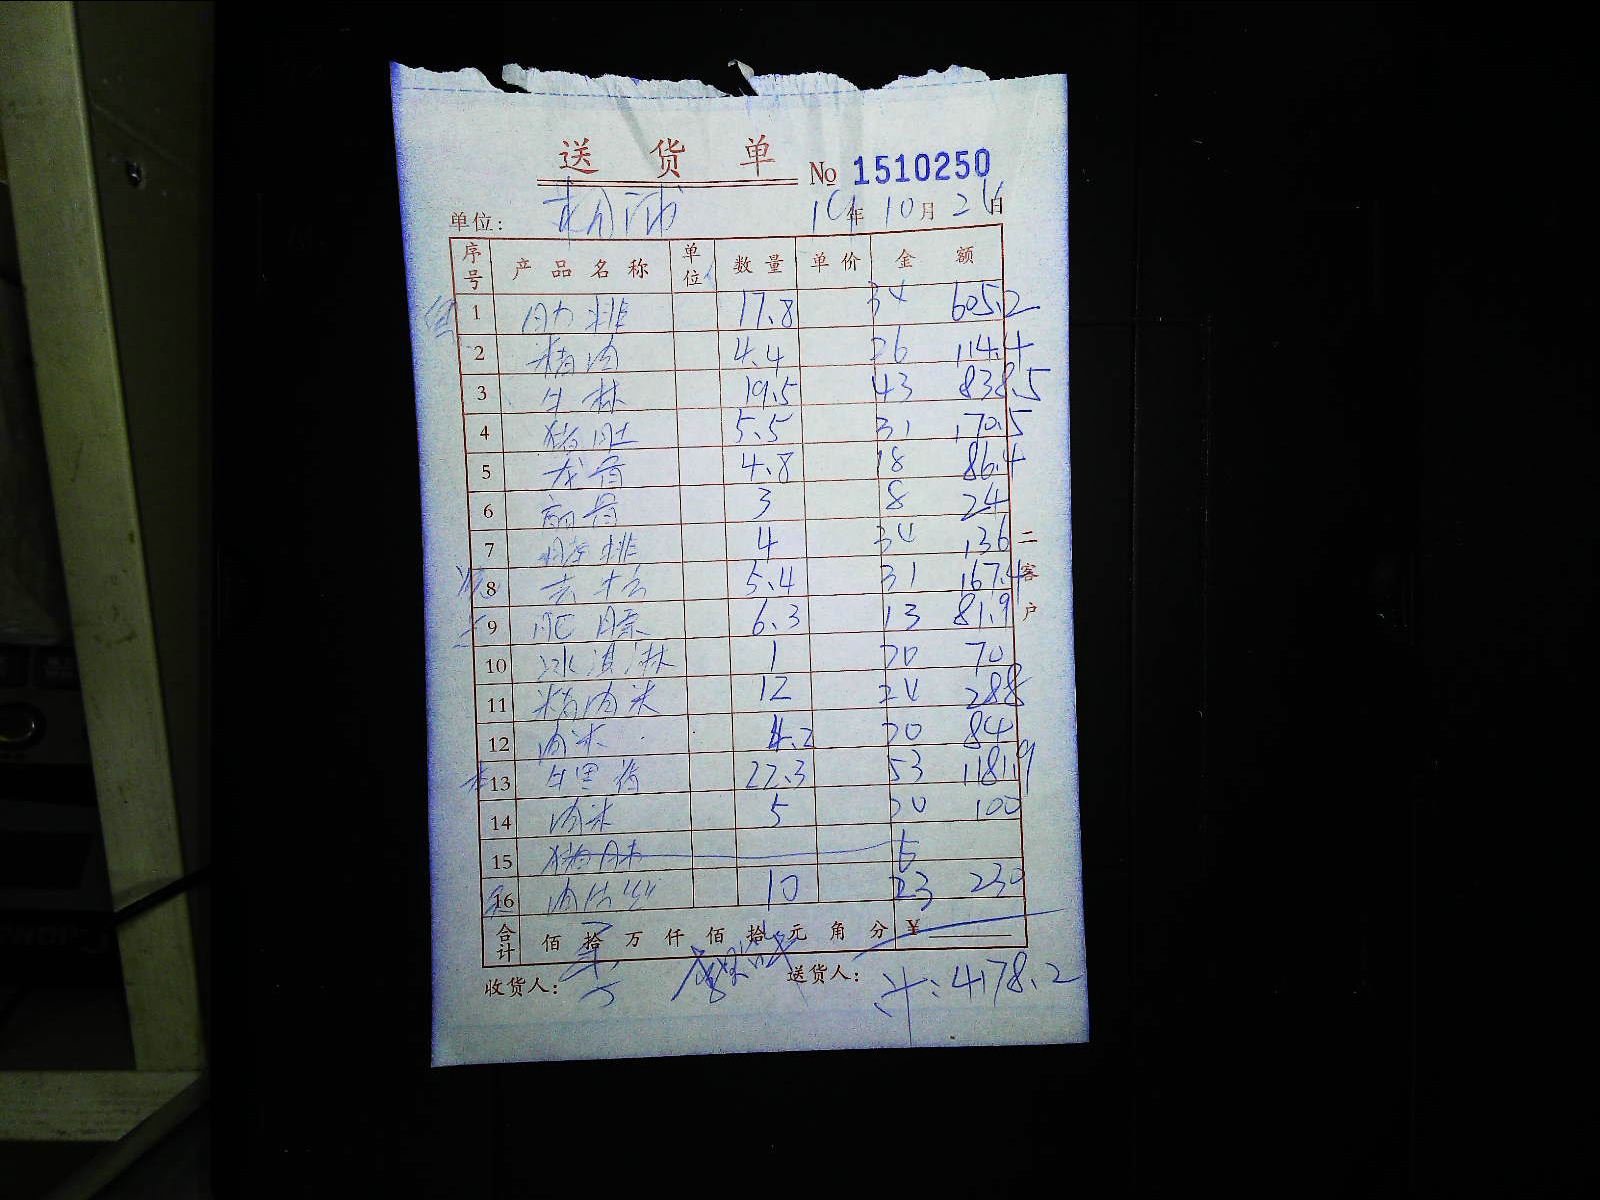 送货单 № 1510250
单位: 19年10月26日
序号 产品名称 单位 数量 单价 金额
1 肋排 17.8 34 605.2
2 精肉 4.4 26 114.4
3 牛林 19.5 43 838.5
4 猪肚 5.5 31 170.5
5 龙骨 4.8 18 86.4
6 骨 3 8 24
7 排 4 34 136
8 5.4 31 167.4
9 肥膘 6.3 13 81.9
10 冰淇淋 1 70 70
11 精肉米 12 24 288
12 肉米 4.2 20 84
13 牛里脊 22.3 53 1181.9
14 肉米 5 20 100
15 猪
16 肉丝 10 23 230
合计 佰拾万仟佰拾元角分 ¥
收货人: 送货人: 计:4178.2
二客户